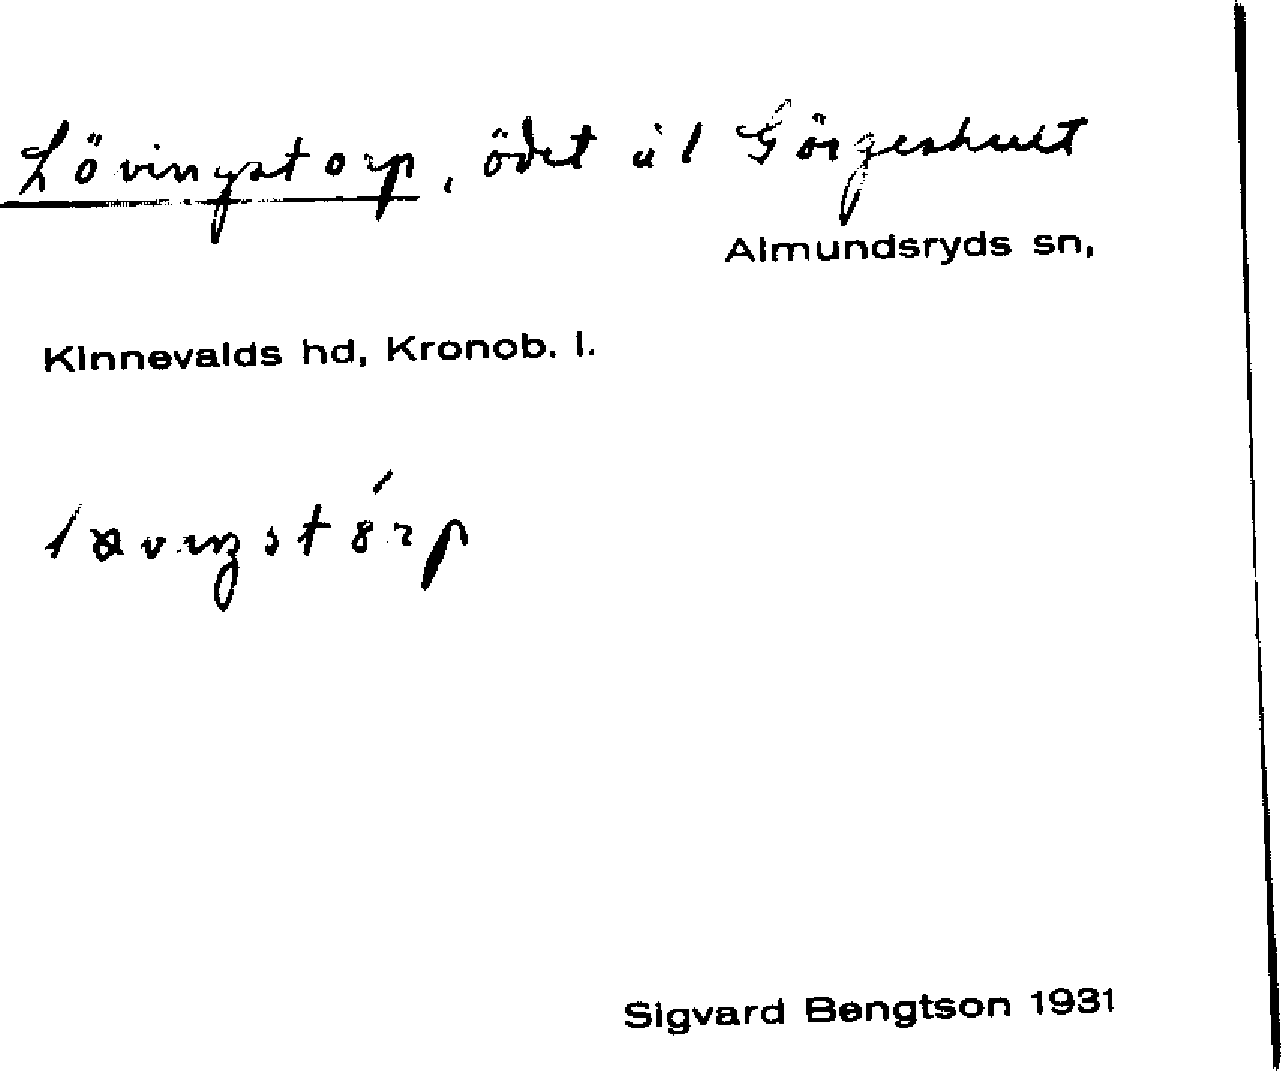 Lövingstorp, ödet ål Görgeshult
Almundsryds sn,
Kinnevalds hd, Kronob. l.
Sigvard Bengtson 1931